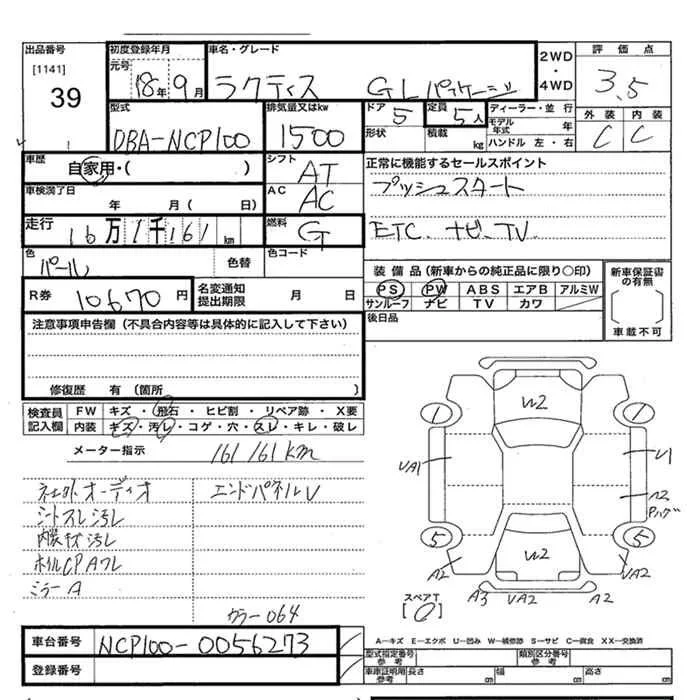 出品番号
[1141]
39
初度登録年月
元号 18年 9月
車名・グレード
ラクティス GLパッケージ
2WD
・
4WD
評価点
3.5
外装 内装
C C
型式
DBA-NCP100
排気量又はkw
1500
ドア
5
形状
定員
5人
積載 kg
ディーラー・並行
モデル年式 年
ハンドル 左・右
車歴
自家用・( )
シフト
AT
車検満了日
年 月( 日)
AC
AC
正常に機能するセールスポイント
プッシュスタート
ETC. ナビ. TV
走行
16万1千161km
燃料
G
色
パール
色替
色コード
R券 10670円
名変通知
提出期限
月 日
装備品(新車からの純正品に限り○印)
PS PW ABS エアB アルミW
サンルーフ ナビ TV カワ
新車保証書の有無
車載不可
後日品
注意事項申告欄(不具合内容等は具体的に記入して下さい)
修復歴 有(箇所 )
検査員記入欄
FW キズ・飛石・ヒビ割・リペア跡・X要
内装 キズ・汚レ・コゲ・穴・スレ・キレ・破レ
メーター指示 161161km
オーディオ エンドパネルU
シートスレ汚レ
内装キズ汚レ
ミラーA
カラー064
W2
1 1
UA1 U1
A2
5 5
W2
A2 UA2
A3 UA2 A2
スペアT
[0]
車台番号 NCP100-0056273
登録番号
A-キズ E-エクボ U-凹み W-補修跡 S-サビ C-腐食 XX-交換済
型式指定番号
参考
類別区分番号
参考
車庫証明用
参考
長さ cm 幅 cm 高さ cm